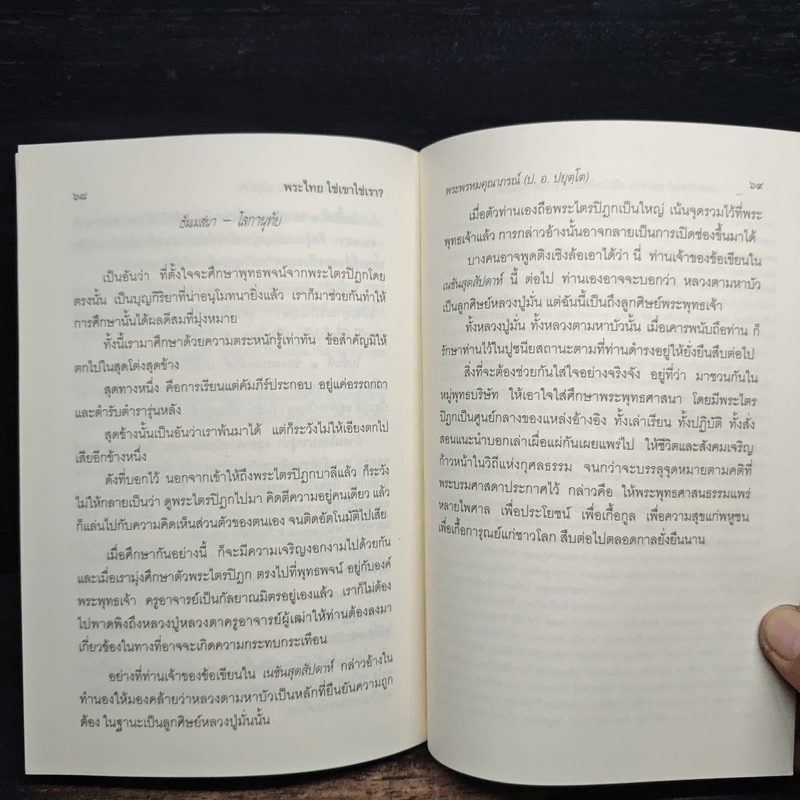 ๖๘
พระไทย ใช่เขาใช่เรา?
ธัมเมสนา – โลกานุทัย
เป็นอันว่า ที่ตั้งใจจะศึกษาพุทธพจน์จากพระไตรปิฎกโดย
ตรงนั้น เป็นบุญกิริยาที่น่าอนุโมทนายิ่งแล้ว เราก็มาช่วยกันทำให้
การศึกษานั้นได้ผลดีสมที่มุ่งหมาย
ทั้งนี้เรามาศึกษาด้วยความตระหนักรู้เท่าทัน ข้อสำคัญมิให้
ตกไปในสุดโต่งสุดข้าง
สุดทางหนึ่ง คือการเรียนแต่คัมภีร์ประกอบ อยู่แค่อรรถกถา
และตำรับตำรารุ่นหลัง
สุดข้างนั้นเป็นอันว่าเราพ้นมาได้ แต่ก็ระวังไม่ให้เอียงตกไป
เสียอีกข้างหนึ่ง
ดังที่บอกไว้ นอกจากเข้าให้ถึงพระไตรปิฎกบาลีแล้ว ก็ระวัง
ไม่ให้กลายเป็นว่า ดูพระไตรปิฎกไปมา คิดตีความอยู่คนเดียว แล้ว
ก็แล่นไปกับความคิดเห็นส่วนตัวของตนเอง จนติดอัตโนมัติไปเสีย
เมื่อศึกษากันอย่างนี้ ก็จะมีความเจริญงอกงามไปด้วยกัน
และเมื่อเรามุ่งศึกษาตัวพระไตรปิฎก ตรงไปที่พุทธพจน์ อยู่กับองค์
พระพุทธเจ้า ครูอาจารย์เป็นกัลยาณมิตรอยู่เองแล้ว เราก็ไม่ต้อง
ไปพาดพิงถึงหลวงปู่หลวงตาครูอาจารย์ผู้เฒ่าให้ท่านต้องลงมา
เกี่ยวข้องในทางที่อาจจะเกิดความกระทบกระเทือน
อย่างที่ท่านเจ้าของข้อเขียนใน เนชันสุดสัปดาห์ กล่าวอ้างใน
ทำนองให้มองคล้ายว่าหลวงตามหาบัวเป็นหลักที่ยืนยันความถูก
ต้อง ในฐานะเป็นลูกศิษย์หลวงปู่มั่นนั้น
พระพรหมคุณาภรณ์ (ป. อ. ปยุตฺโต)
๖๙
เมื่อตัวท่านเองถือพระไตรปิฎกเป็นใหญ่ เน้นจุดรวมไว้ที่พระ
พุทธเจ้าแล้ว การกล่าวอ้างนั้นอาจกลายเป็นการเปิดช่องขึ้นมาได้
บางคนอาจพูดติงเชิงล้อเอาได้ว่า นี่ ท่านเจ้าของข้อเขียนใน
เนชันสุดสัปดาห์ นี้ ต่อไป ท่านเองอาจจะบอกว่า หลวงตามหาบัว
เป็นลูกศิษย์หลวงปู่มั่น แต่ฉันนี้เป็นถึงลูกศิษย์พระพุทธเจ้า
ทั้งหลวงปู่มั่น ทั้งหลวงตามหาบัวนั้น เมื่อเคารพนับถือท่าน ก็
รักษาท่านไว้ในปูชนียสถานะตามที่ท่านดำรงอยู่ให้ยั่งยืนสืบต่อไป
สิ่งที่จะต้องช่วยกันใส่ใจอย่างจริงจัง อยู่ที่ว่า มาชวนกันใน
หมู่พุทธบริษัท ให้เอาใจใส่ศึกษาพระพุทธศาสนา โดยมีพระไตร
ปิฎกเป็นศูนย์กลางของแหล่งอ้างอิง ทั้งเล่าเรียน ทั้งปฏิบัติ ทั้งสั่ง
สอนแนะนำบอกเล่าเผื่อแผ่กันเผยแพร่ไป ให้ชีวิตและสังคมเจริญ
ก้าวหน้าในวิถีแห่งกุศลธรรม จนกว่าจะบรรลุจุดหมายตามคติที่
พระบรมศาสดาประกาศไว้ กล่าวคือ ให้พระพุทธศาสนธรรมแพร่
หลายไพศาล เพื่อประโยชน์ เพื่อเกื้อกูล เพื่อความสุขแก่พหูชน
เพื่อเกื้อการุณย์แก่ชาวโลก สืบต่อไปตลอดกาลยั่งยืนนาน